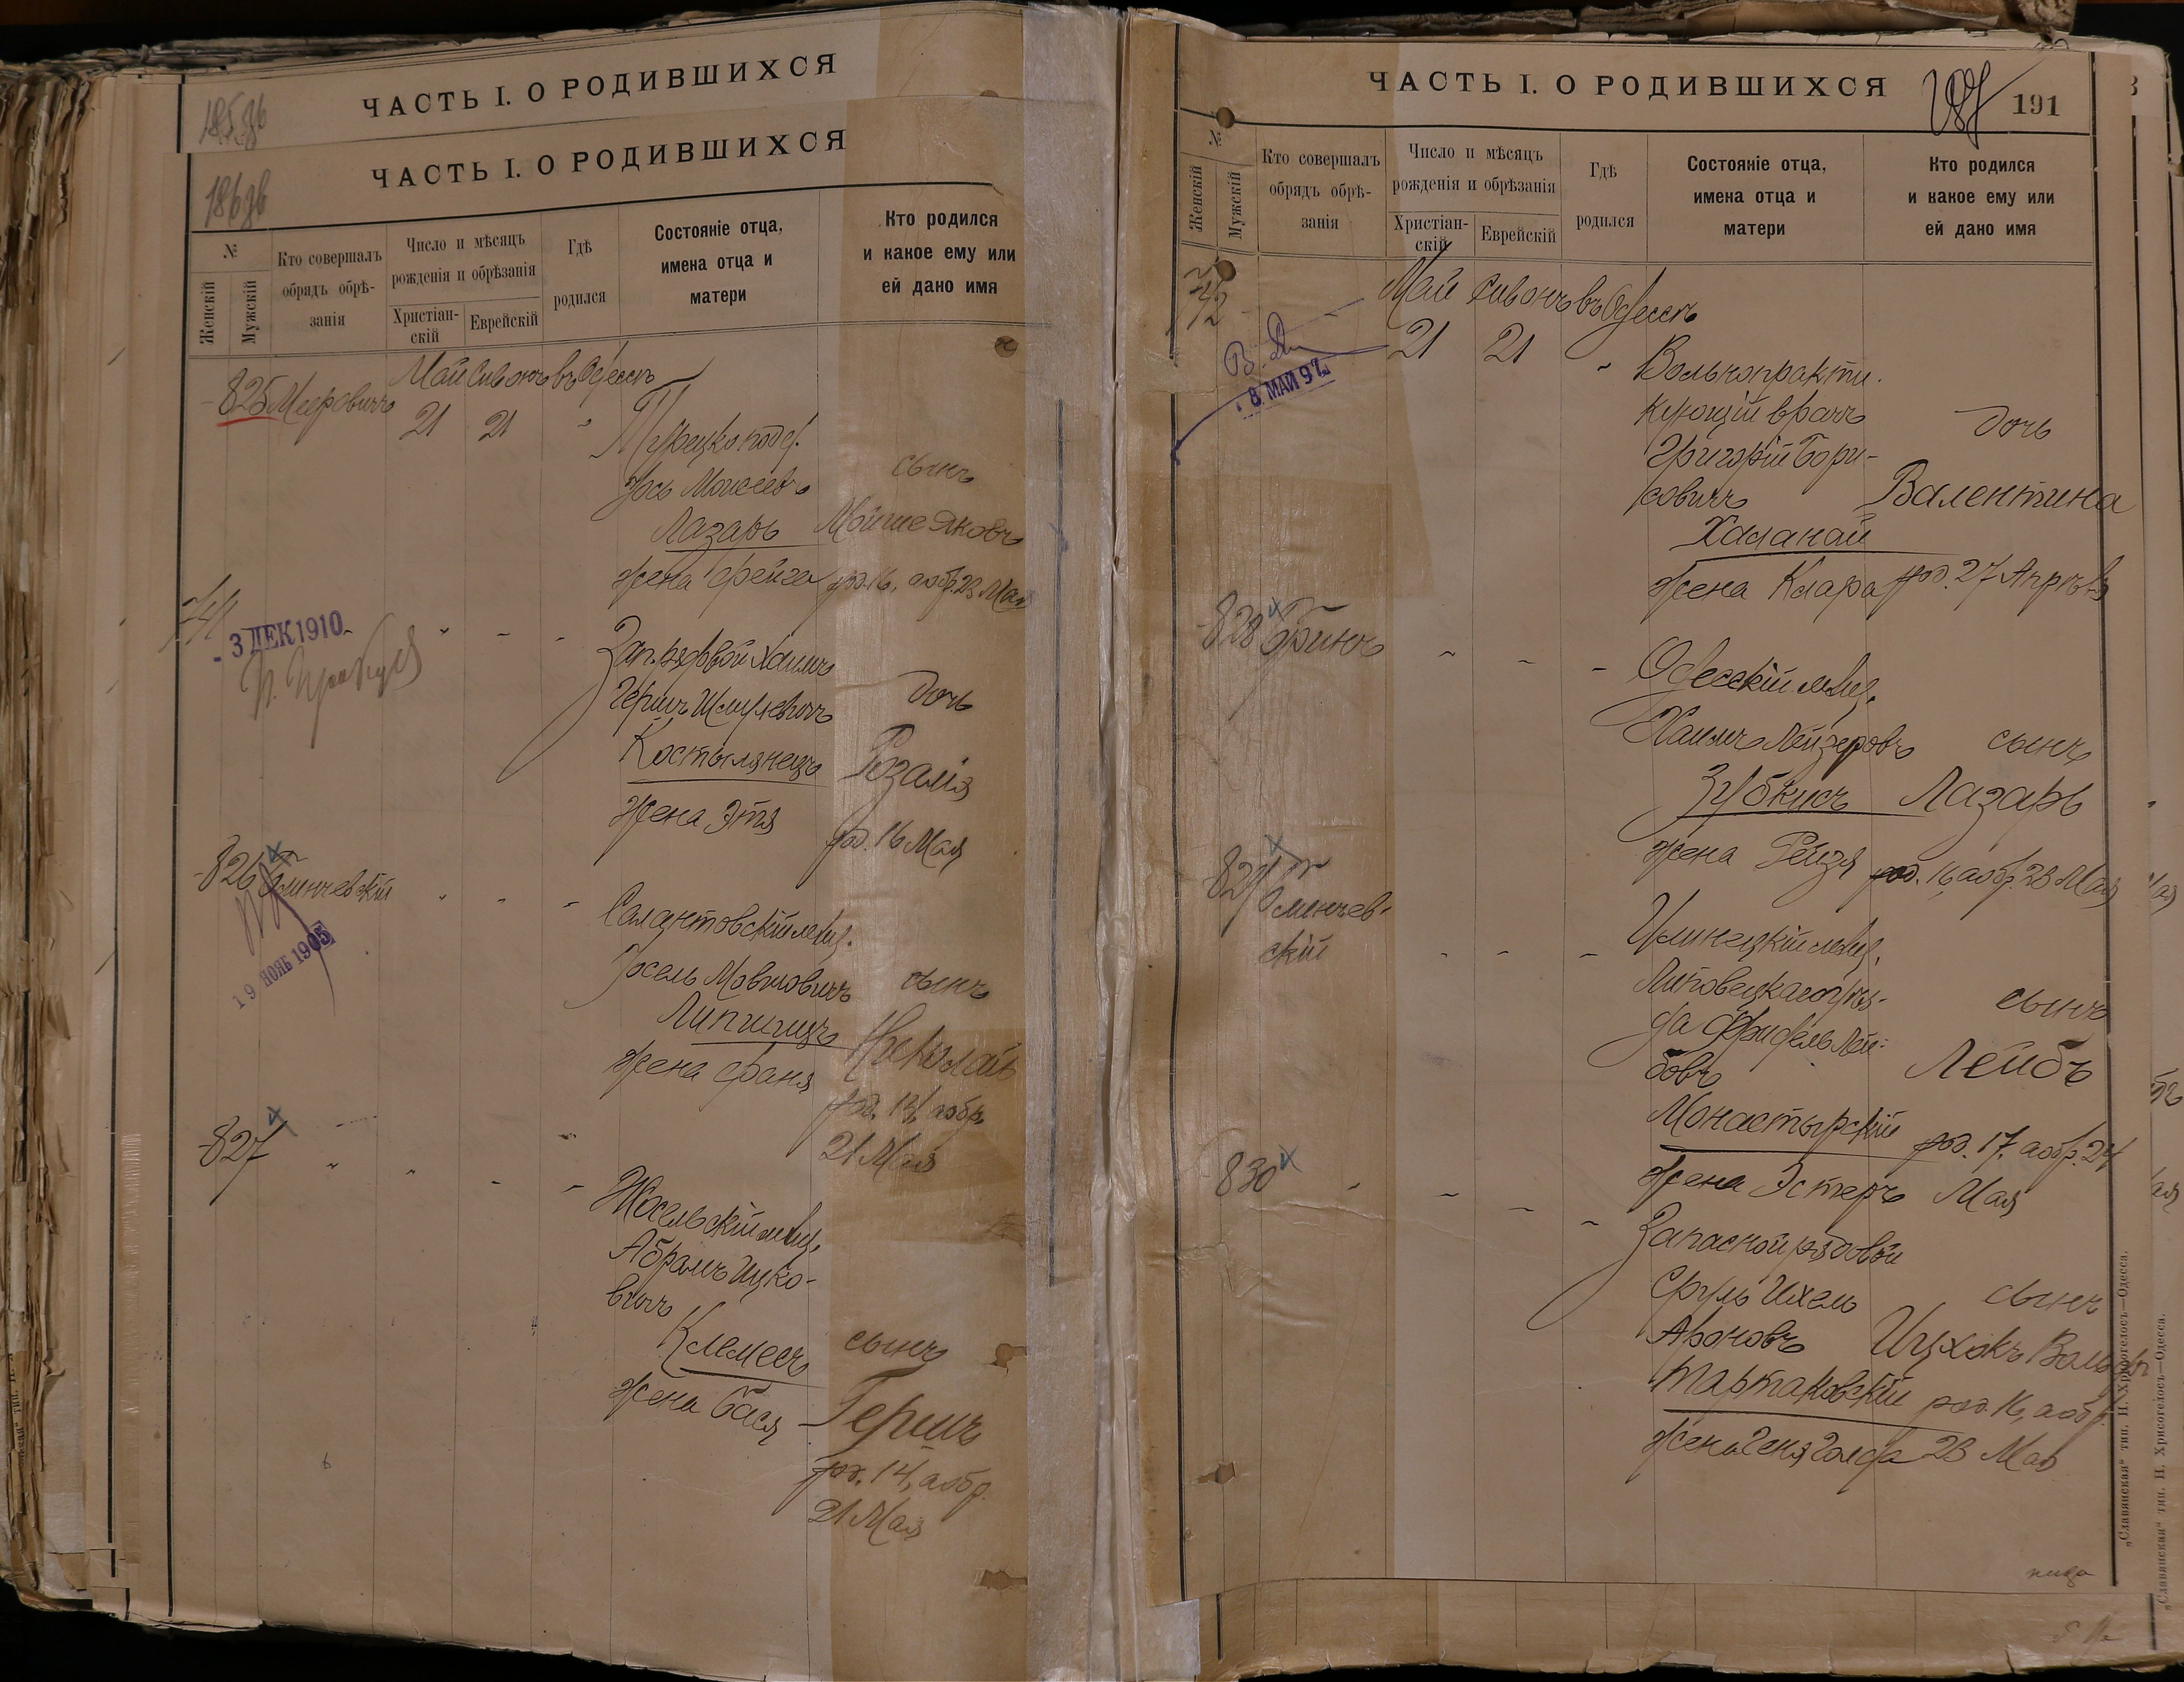 ЧАСТЬ I. О РОДИВШИХСЯ
185 об
ЧАСТЬ I. О РОДИВШИХСЯ
186 об
№
Женскій
Мужскій
Кто совершалъ
обрядъ обрѣ-
занія
Число и мѣсяцъ
рожденія и обрѣзанія
Христіан-
скій
Еврейскій
Гдѣ
родился
Состояніе отца,
имена отца и
матери
Кто родился
и какое ему или
ей дано имя
Май Сивонъ въ Одессѣ
825 Мееровичъ 21 21 "
Турецкоподд.
Іось Моисеевъ
Лазарь
жена Фейга
сынъ
Мойше Яковъ
род. 16, а обр. 23 Мая
741
3 ДЕК 1910
Зап. рядовой Хаимъ
Гершъ Шмулевичъ
Костылянецъ
жена Этя
дочь
Розалія
род. 16 Мая
826
19 НОЯБ 1905
Салантовскій мѣщ.
Іосель Мавшовичъ
Липшицъ
жена Фаня
сынъ
Николай
род. 14, а обр.
21 Мая
827
мѣщ.
Абрамъ Ицко-
вичъ
Клемесъ
жена Бася
сынъ
Гершъ
род. 14, а обр.
21 Мая
ЧАСТЬ I. О РОДИВШИХСЯ
187
191
№
Женскій
Мужскій
Кто совершалъ
обрядъ обрѣ-
занія
Число и мѣсяцъ
рожденія и обрѣзанія
Христіан-
скій
Еврейскій
Гдѣ
родился
Состояніе отца,
имена отца и
матери
Кто родился
и какое ему или
ей дано имя
742
Май Сивонъ въ Одессѣ
21 21 "
8. МАЙ 97
Вольнопракти-
кующій врачъ
Григорій Бори-
совичъ
Халанай
жена Клара
дочь
Валентина
род. 27 Апрѣля
828
Одесскій мѣщ.
Хаимъ Лейзеровъ
Зубкисъ
жена Рейзя
сынъ
Лазарь
род. 16, а обр. 23 Мая
829
Илинецкій мѣщ.
Липовецкаго уѣз-
да Фридель Лей-
бовъ
Монастырскій
жена Эстеръ
сынъ
Лейбъ
род. 17, а обр. 24
Мая
830
Запасной рядовой
Сруль Ихель
Ароновъ
Тартаковскій
жена Геня Голда
сынъ
Ицхокъ Вольфъ
род. 16, а обр.
23 Мая
„Славянская“ тип. Н. Хрисогелосъ—Одесса.
„Славянская“ тип. Н. Хрисогелосъ—Одесса.